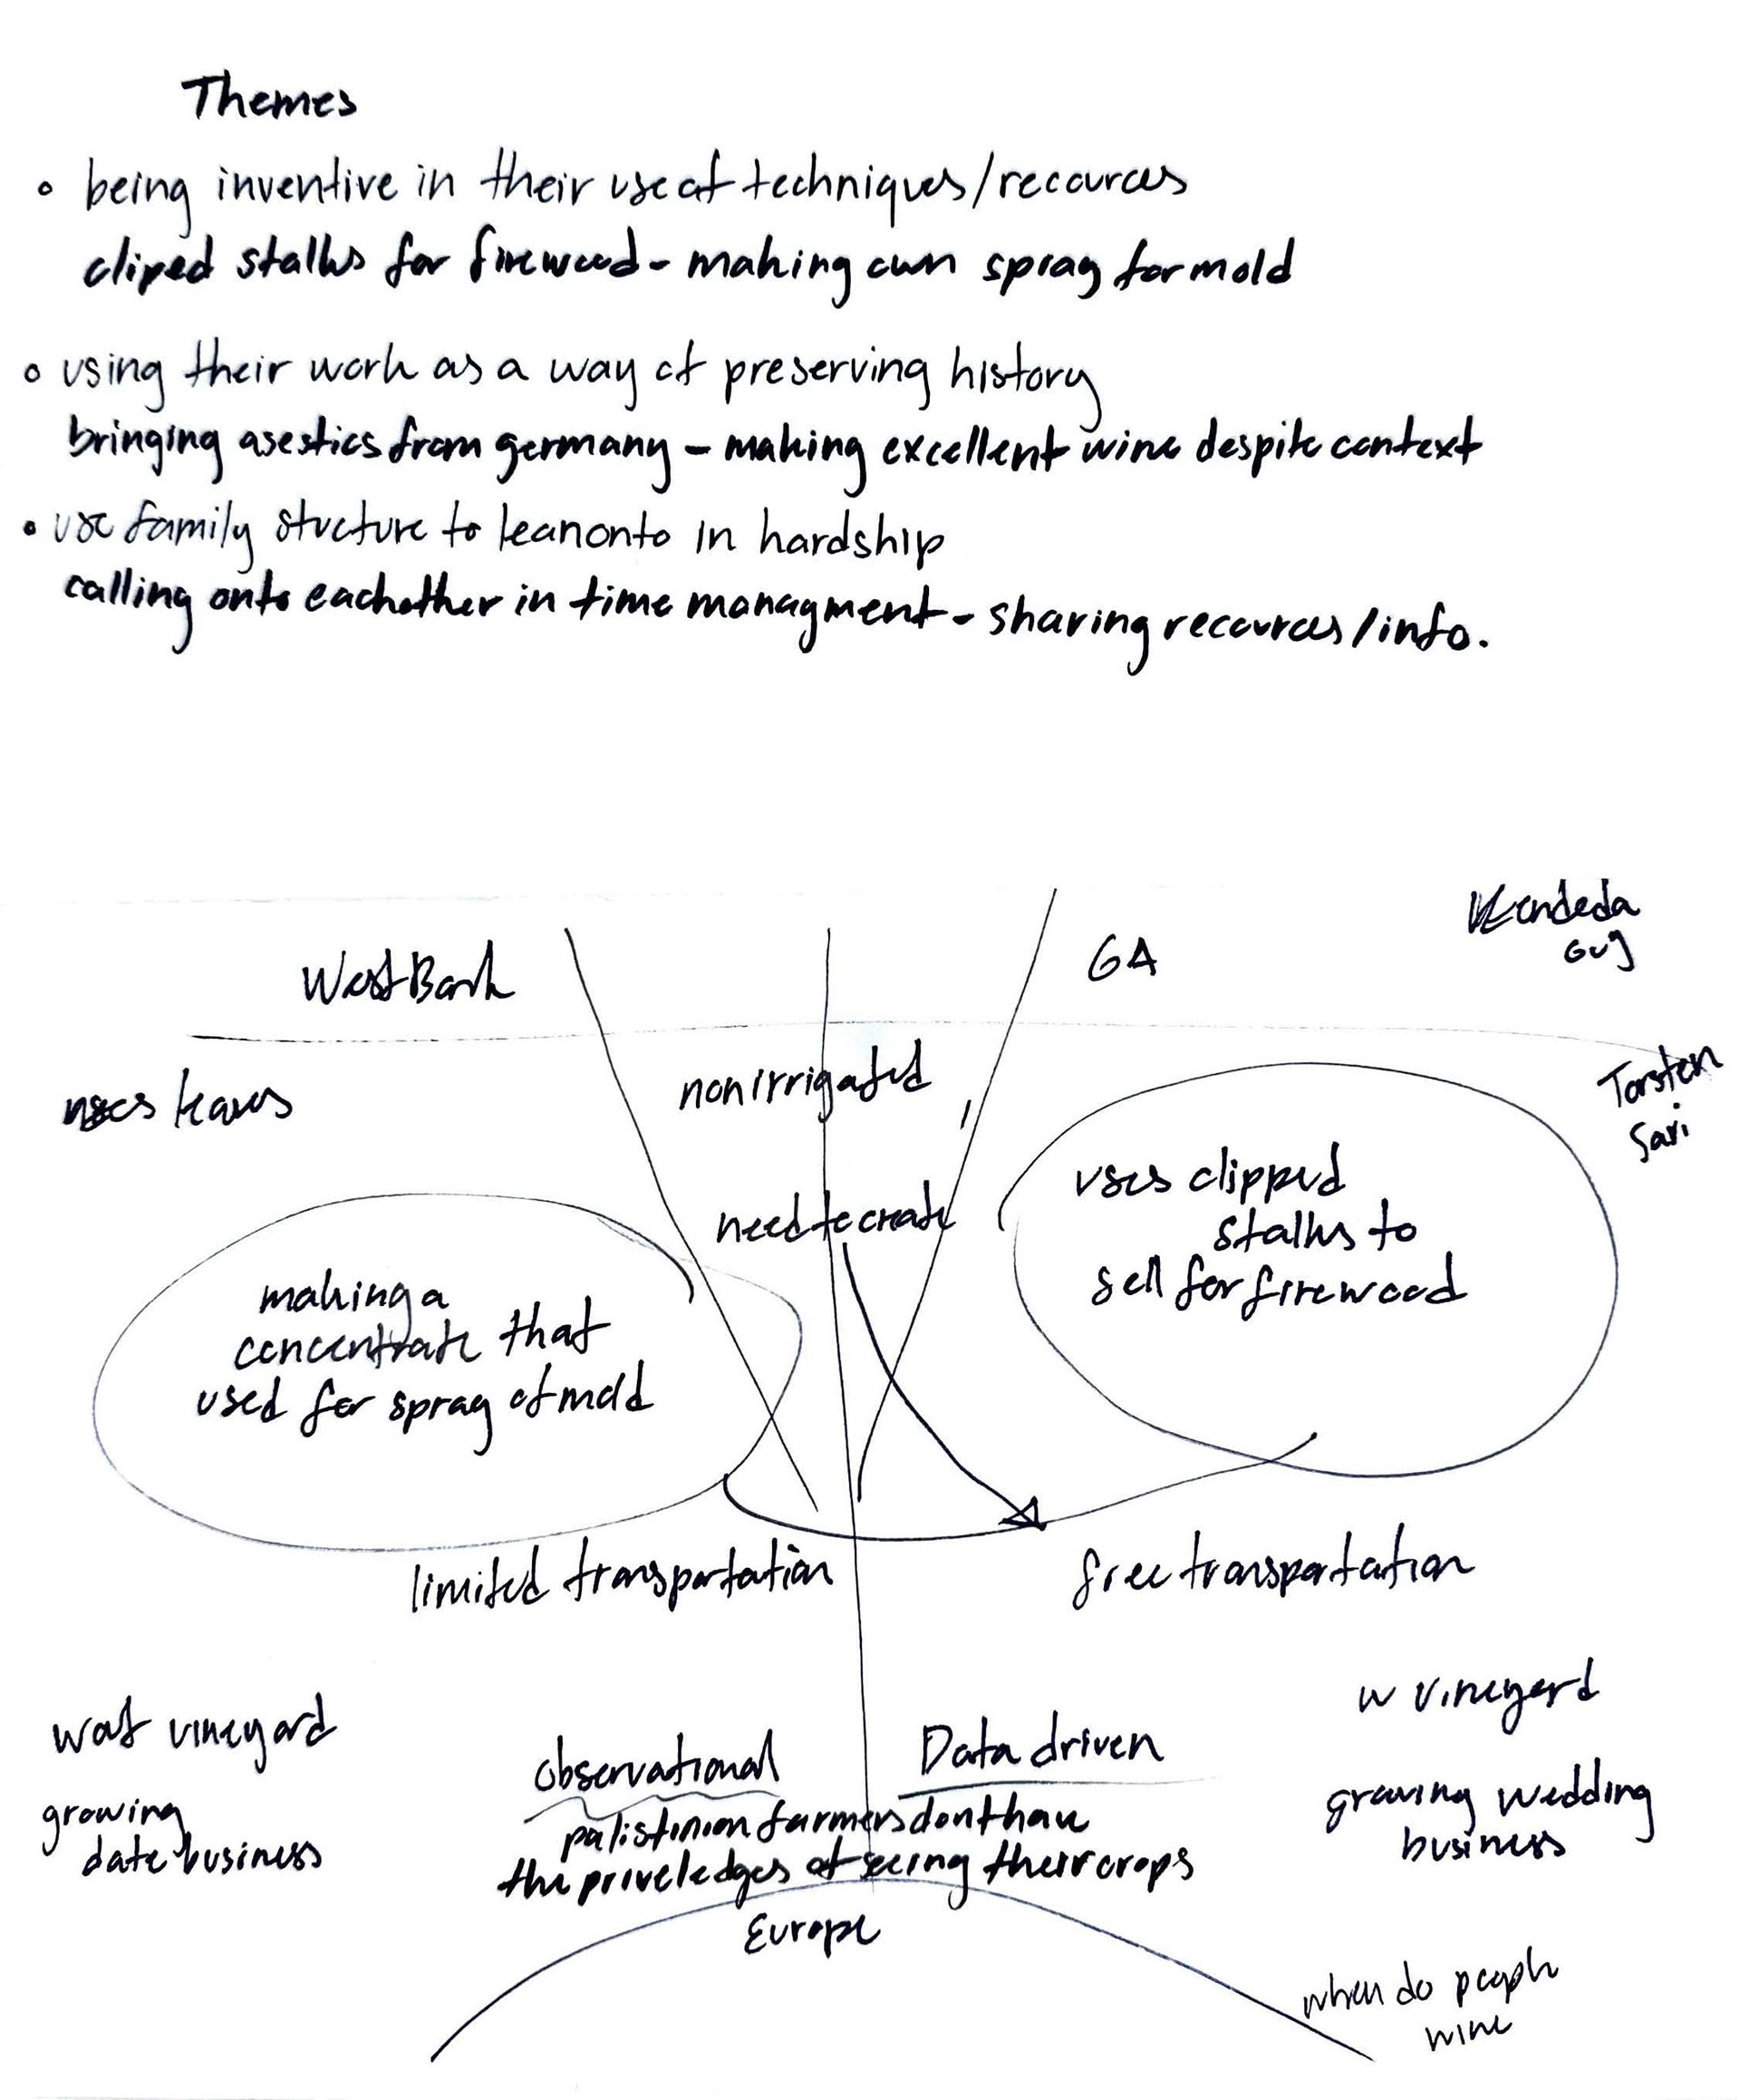 Themes
being inventive in their use of techniques/recources
cliped stalks for firewood - making own spray for mold
using their work as a way of preserving history
bringing asestics from germany - making excellent wine despite context
use family stucture to lean onto in hardship
calling onto eachother in time managment - sharing recources/info.
Kendeda
Guy
West Bank
GA
Torsten
Sari
non irrigated
uses leaves
need to create
uses clipped
stalks to
sell for firewood
making a
concentrate that
used for spray of mold
limited transportation
free transportation
w vineyard
vineyard
Observational
Data driven
growing
date business
growing wedding
business
palistinion farmers dont have
the priveledges of seeing their crops
Europe
when do people
wine